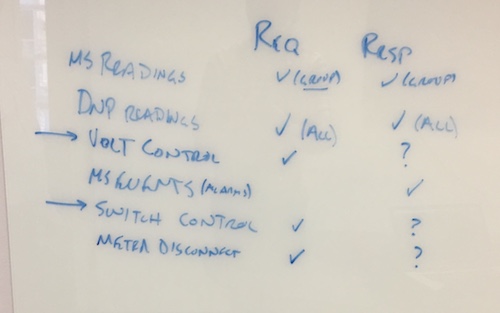 REQ RESP
MS READINGS ✓ (GROUP) ✓ (GROUP)
DNP READINGS ✓ (ALL) ✓ (ALL)
→ VOLT CONTROL ✓ ?
MS EVENTS (ALARMS) ✓
→ SWITCH CONTROL ✓ ?
METER DISCONNECT ✓ ?